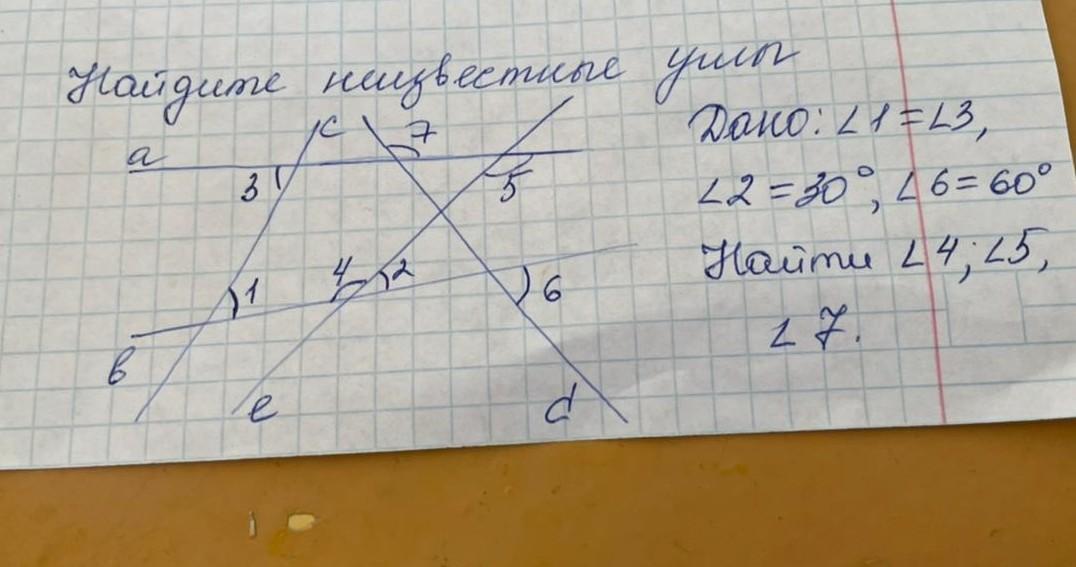 Найдите неизвестные углы
Дано: ∠1=∠3,
∠2=30°, ∠6=60°
Найти ∠4; ∠5,
∠7.
c
7
a
3
5
4
2
1
6
в
e
d